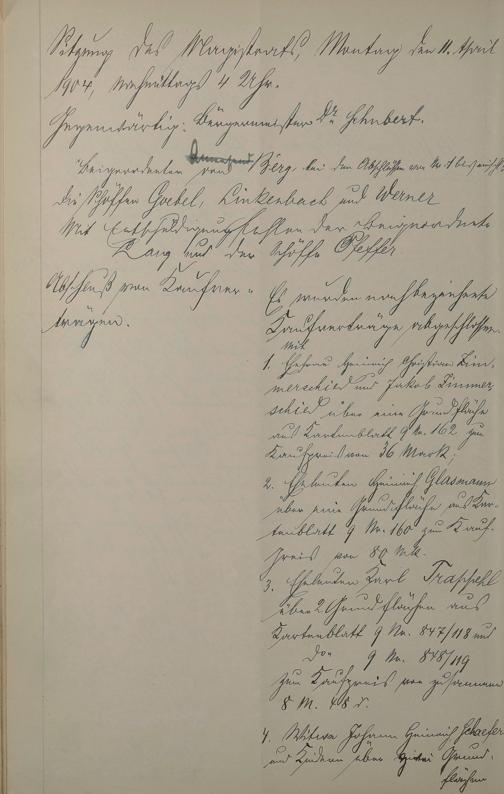 Sitzung des Magistrats, Montag den 11. April
1904, nachmittags 4 Uhr.
Gegenwärtig: Bürgermeister Dr. Schubert.
Beigeordneten von Berg bei den Abschlüssen von Nr. 1 bis
die Schöffen Goebel, Linkenbach und Werner
Mit Entschuldigung fehlen der Beigeordnete
Lang und der Schöffe Pfeffer
Abschluß von Kaufver-
trägen.
Es wurden nachbezeichnete
Kaufverträge abgeschlossen.
Mit
1. Eheleute Heinrich Christian Zim-
merschied und Jakob Zimmer
schied über eine Grundfläche
aus Kartenblatt 9 Nr. 162 zum
Kaufpreis von 36 Mark;
2. Eheleuten Heinrich Glasmann
über eine Grundfläche aus Kar-
tenblatt 9 Nr. 160 zum Kauf-
preis von 80 Mk.
3. Eheleuten Karl
über 2 Grundflächen aus
Kartenblatt 9 Nr. 847/118 und
do 9 Nr. 848/119
zum Kaufpreis von zusammen
8 M. 48 d.
4. Witwe Johann Heinrich Schaefer
und Kindern über Grund-
flächen